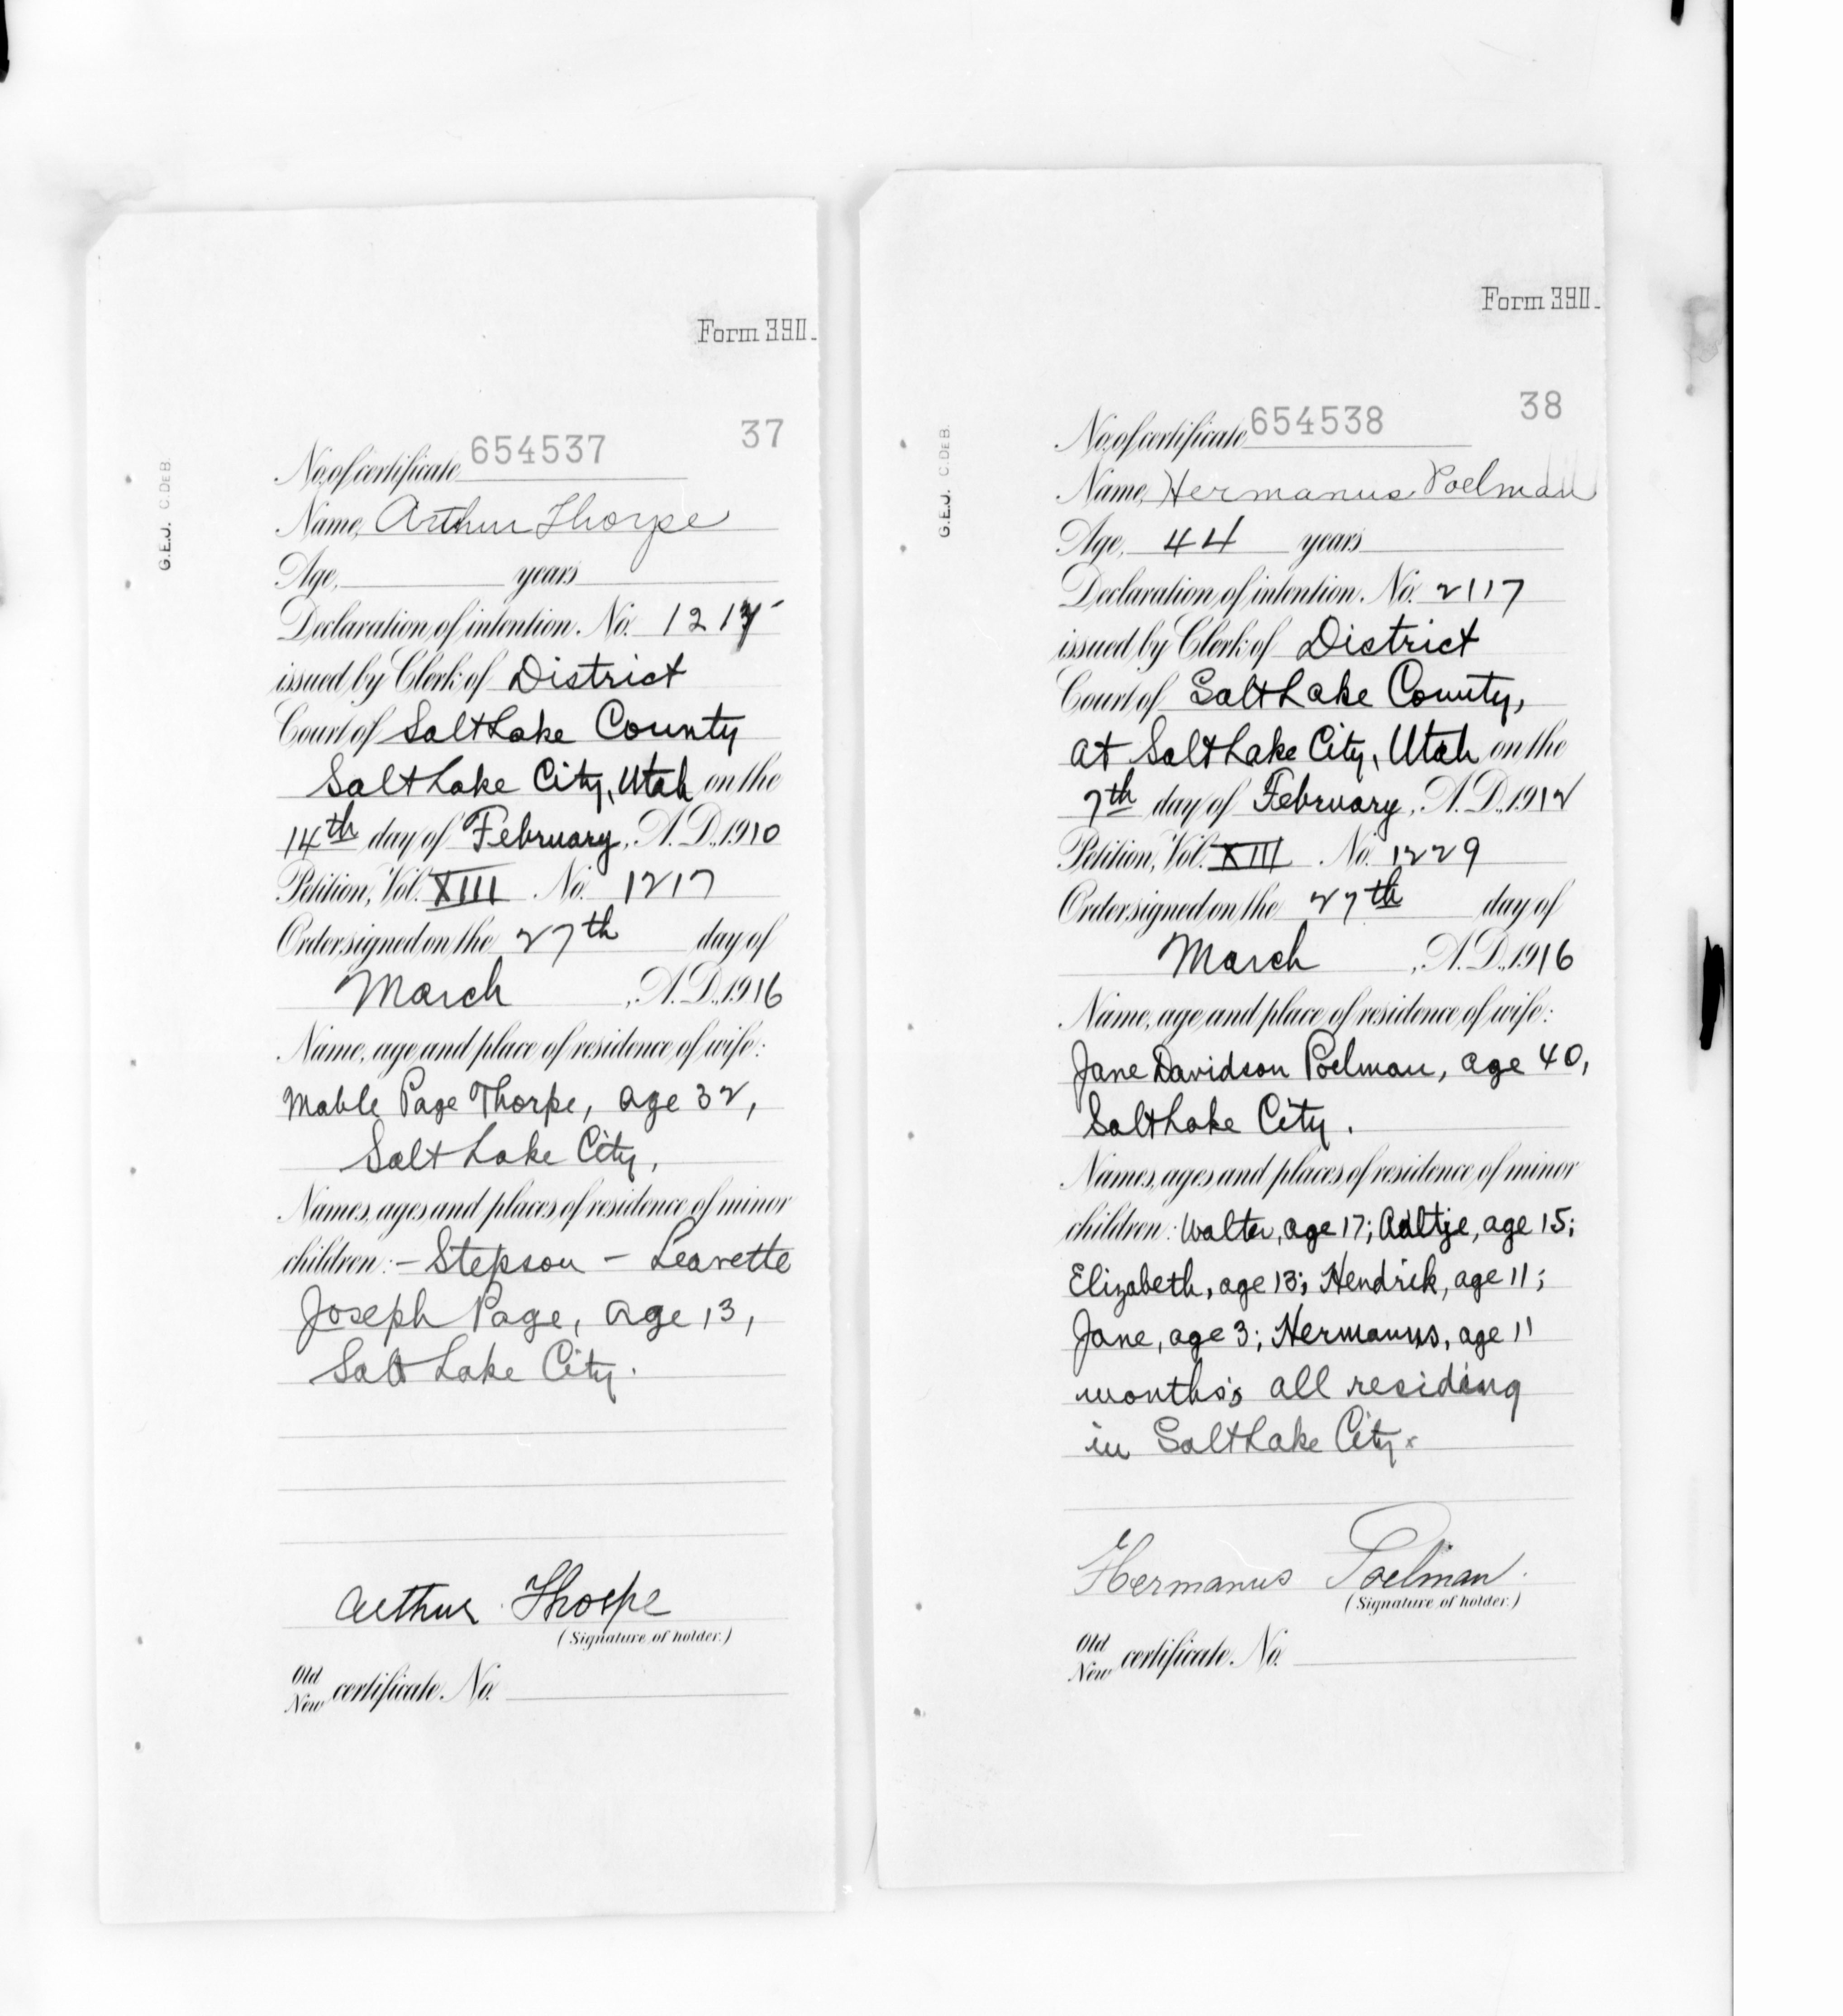 Form 390.
37
No. of certificate 654537
Name, Arthur Thorpe
Age, years
Declaration of intention. No. 1217
issued by Clerk of District
Court of Salt Lake County
Salt Lake City, Utah on the
14th day of February, A.D., 1910
Petition, Vol. XIII No. 1217
Order signed on the 27th day of
March, A.D., 1916
Name, age and place of residence of wife:
Mable Page Thorpe, age 32,
Salt Lake City,
Names, ages and places of residence of minor
children: - Stepson - Leavette
Joseph Page, age 13,
Salt Lake City.
Arthur Thorpe
(Signature of holder.)
Old
New certificate. No.
G.E.J. C. DE B.
Form 390.
38
No. of certificate 654538
Name, Hermanus Poelman
Age, 44 years
Declaration of intention. No. 2117
issued by Clerk of District
Court of Salt Lake County,
at Salt Lake City, Utah on the
7th day of February, A.D., 1912
Petition, Vol. XIII No. 1229
Order signed on the 27th day of
March, A.D., 1916
Name, age and place of residence of wife:
Jane Davidson Poelman, age 40,
Salt Lake City.
Names, ages and places of residence of minor
children: Walter, age 17; Aaltje, age 15;
Elizabeth, age 13; Hendrik, age 11;
Jane, age 3; Hermanus, age 11
months; all residing
in Salt Lake City.
Hermanus Poelman.
(Signature of holder.)
Old
New certificate. No.
G.E.J. C. DE B.